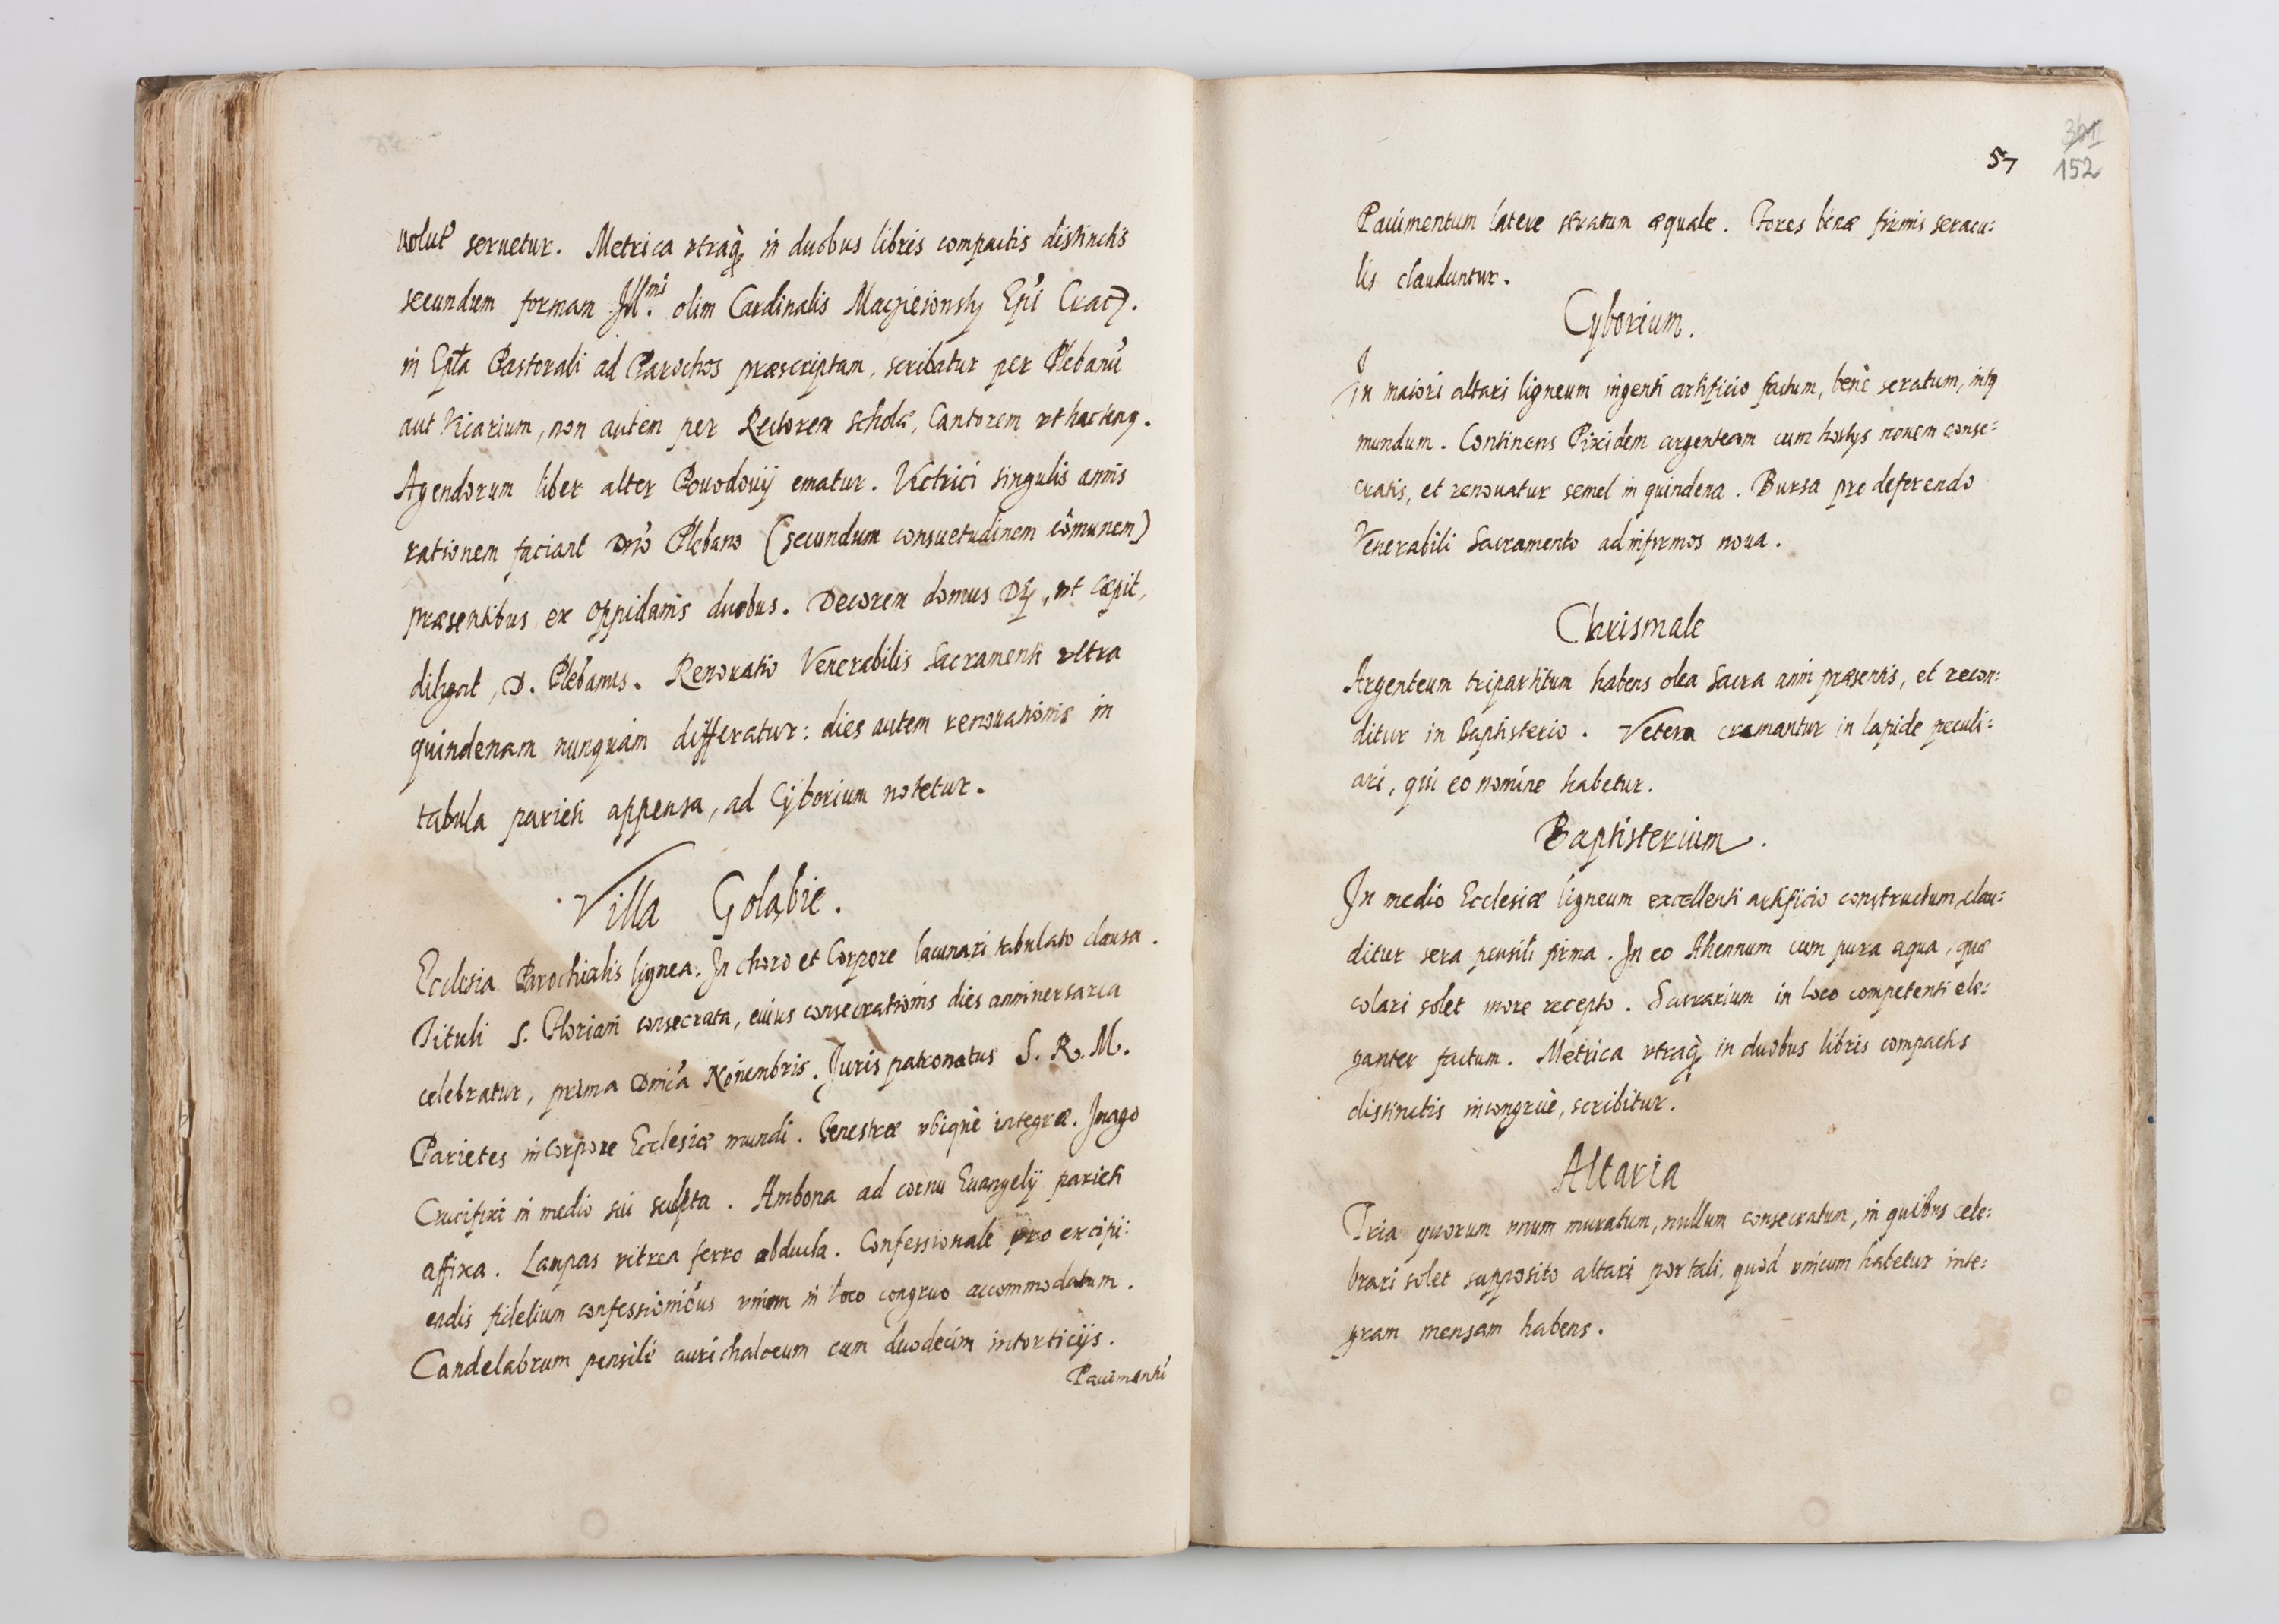 uolut seruetur. Metrica vtraq̃ in duobus libris compactis distinctis
secundum formam Ill.mi olim Cardinalis Macieiowsky Ep̃i Crac.
in Ep̃la Pastorali ad Parochos præscriptam, scribatur per Plebanũ
aut Vicarium, non autem per Rectorem scholæ, Cantorem vt hacteng.
Agendorum liber alter Powodouij ematur. Victrici singulis annis
rationem faciant Dnõ Plebano (secundum consuetudinem cõmunem)
præsentibus ex oppidanis duobus. Decorem domus Dej, vt cæpit,
diligat, D. Plebanus. Renouatio Venerabilis Sacramenti vltra
quindenam nunquam differatur: dies autem renouationis in
tabula parieti appensa, ad Cyborium notetur.
Villa Goląbie.
Ecclesia Parochialis lignea. In choro et Corpore lacunari tabulato clausa.
Tituli S. Floriani consecrata, cuius consecrationis dies anniuersaria
celebratur, prima Dnicã Nouembris. Juris patronatus S. R. M.
Parietes in corpore Ecclesiæ mundi. Fenestræ vbiquè integræ. Imago
Crucifixi in medio sui sculpta. Ambona ad cornu Euangelij parieti
affixa. Lampas vitrea ferro obducta. Confessionale pro excipi:
endis fidelium confessionibus vnum in loco congruo accommodatum.
Candelabrum pensile aurichalceum cum duodecim intorticijs.
Pauimentũ
57
152
Pauimentum latere stratum æquale. Fores binæ firmis seracu:
lis clauduntur.
Cyborium.
In maiori altari ligneum ingenti artificio factum, benè seratum, intq
mundum. Continens Pixidem argenteam cum hostijs nouem conse:
cratis, et renouatur semel in quindena. Bursa pro deferendo
Venerabili Sacramento ad infirmos noua.
Chrismale
Argenteum tripartitum habens olea sacra anni præsentis, et recon:
ditur in Baptisterio. Vetera cremantur in lapide peculi:
ari, qui eo nomine habetur.
Baptisterium.
In medio Ecclesiæ ligneum excellenti artificio constructum, clau:
ditur sera pensili firma. In eo Ahennum cum pura aqua, quæ
colari solet more recepto. Sacrarium in loco competenti ele:
ganter factum. Metrica vtraq̃ in duobus libris compactis
distinctis incongruè, scribitur.
Altaria
Tria quorum vnum muratum, nullum consecratum, in quibus cele:
brari solet supposito altari portali, quod vnicum habetur inte:
gram mensam habens.